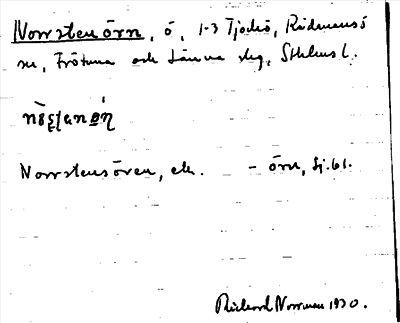 Norrstenörn, ö, 1-3 Tjockö, Rådmansö
sn, Frötuna och Länna skg, Sthlms l.
Norrstensören, ek. - örn, Sj.61.
Rickard Norrman 1930.